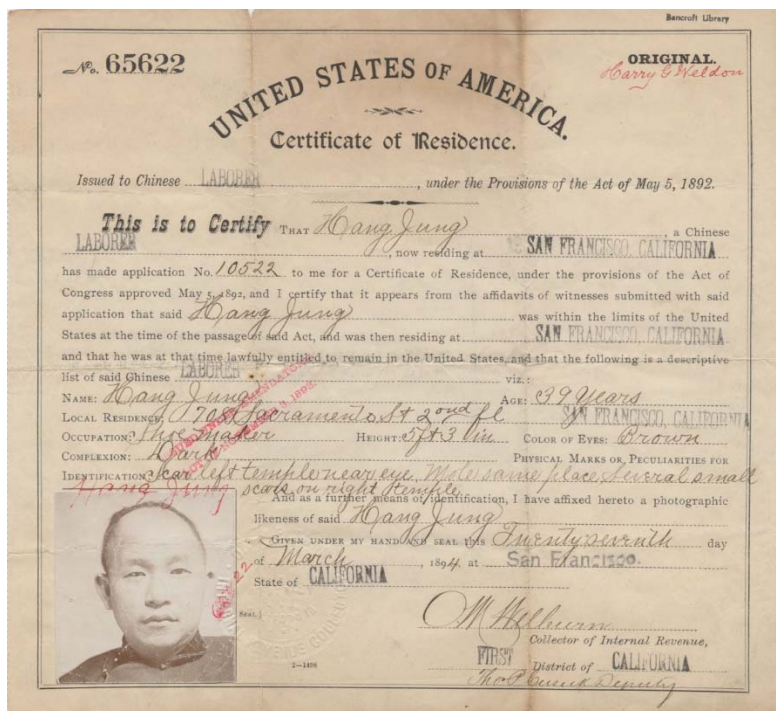 Bancroft Library
No. 65622
ORIGINAL.
Harry G Weldon
UNITED STATES OF AMERICA.
Certificate of Residence.
Issued to Chinese LABORER, under the Provisions of the Act of May 5, 1892.
This is to Certify THAT Hang Jung, a Chinese
LABORER, now residing at SAN FRANCISCO, CALIFORNIA
has made application No. 10522 to me for a Certificate of Residence, under the provisions of the Act of
Congress approved May 5, 1892, and I certify that it appears from the affidavits of witnesses submitted with said
application that said Hang Jung was within the limits of the United
States at the time of the passage of said Act, and was then residing at SAN FRANCISCO, CALIFORNIA
and that he was at that time lawfully entitled to remain in the United States, and that the following is a descriptive
list of said Chinese LABORER viz.:
NAME: Hang Jung AGE: 39 Years
LOCAL RESIDENCE: 708 Sacramento St 2ond fl SAN FRANCISCO, CALIFORNIA
OCCUPATION: Shoe maker HEIGHT: 5ft 3 1in COLOR OF EYES: Brown
COMPLEXION: Dark PHYSICAL MARKS OR PECULIARITIES FOR
IDENTIFICATION: Scar left temple near eye. Mole same place several small
scars on right temple
Hang Jung
And as a further means of identification, I have affixed hereto a photographic
likeness of said Hang Jung
GIVEN UNDER MY HAND AND SEAL this Twenty seventh day
of March, 1894 at San Francisco.
State of CALIFORNIA
[Seal.]
O M Welburn
Collector of Internal Revenue,
FIRST District of CALIFORNIA
Tho P. Cusick Deputy
2—1498